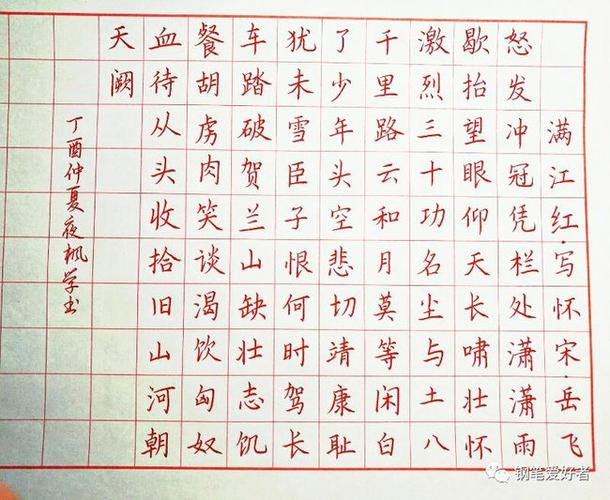 满江红·写怀宋·岳飞
怒发冲冠凭栏处潇潇雨
歇抬望眼仰天长啸壮怀
激烈三十功名尘与土八
千里路云和月莫等闲白
了少年头空悲切靖康耻
犹未雪臣子恨何时驾长
车踏破贺兰山缺壮志饥
餐胡虏肉笑谈渴饮匈奴
血待从头收拾旧山河朝
天阙
丁酉仲夏夜枫学书
钢笔爱好者